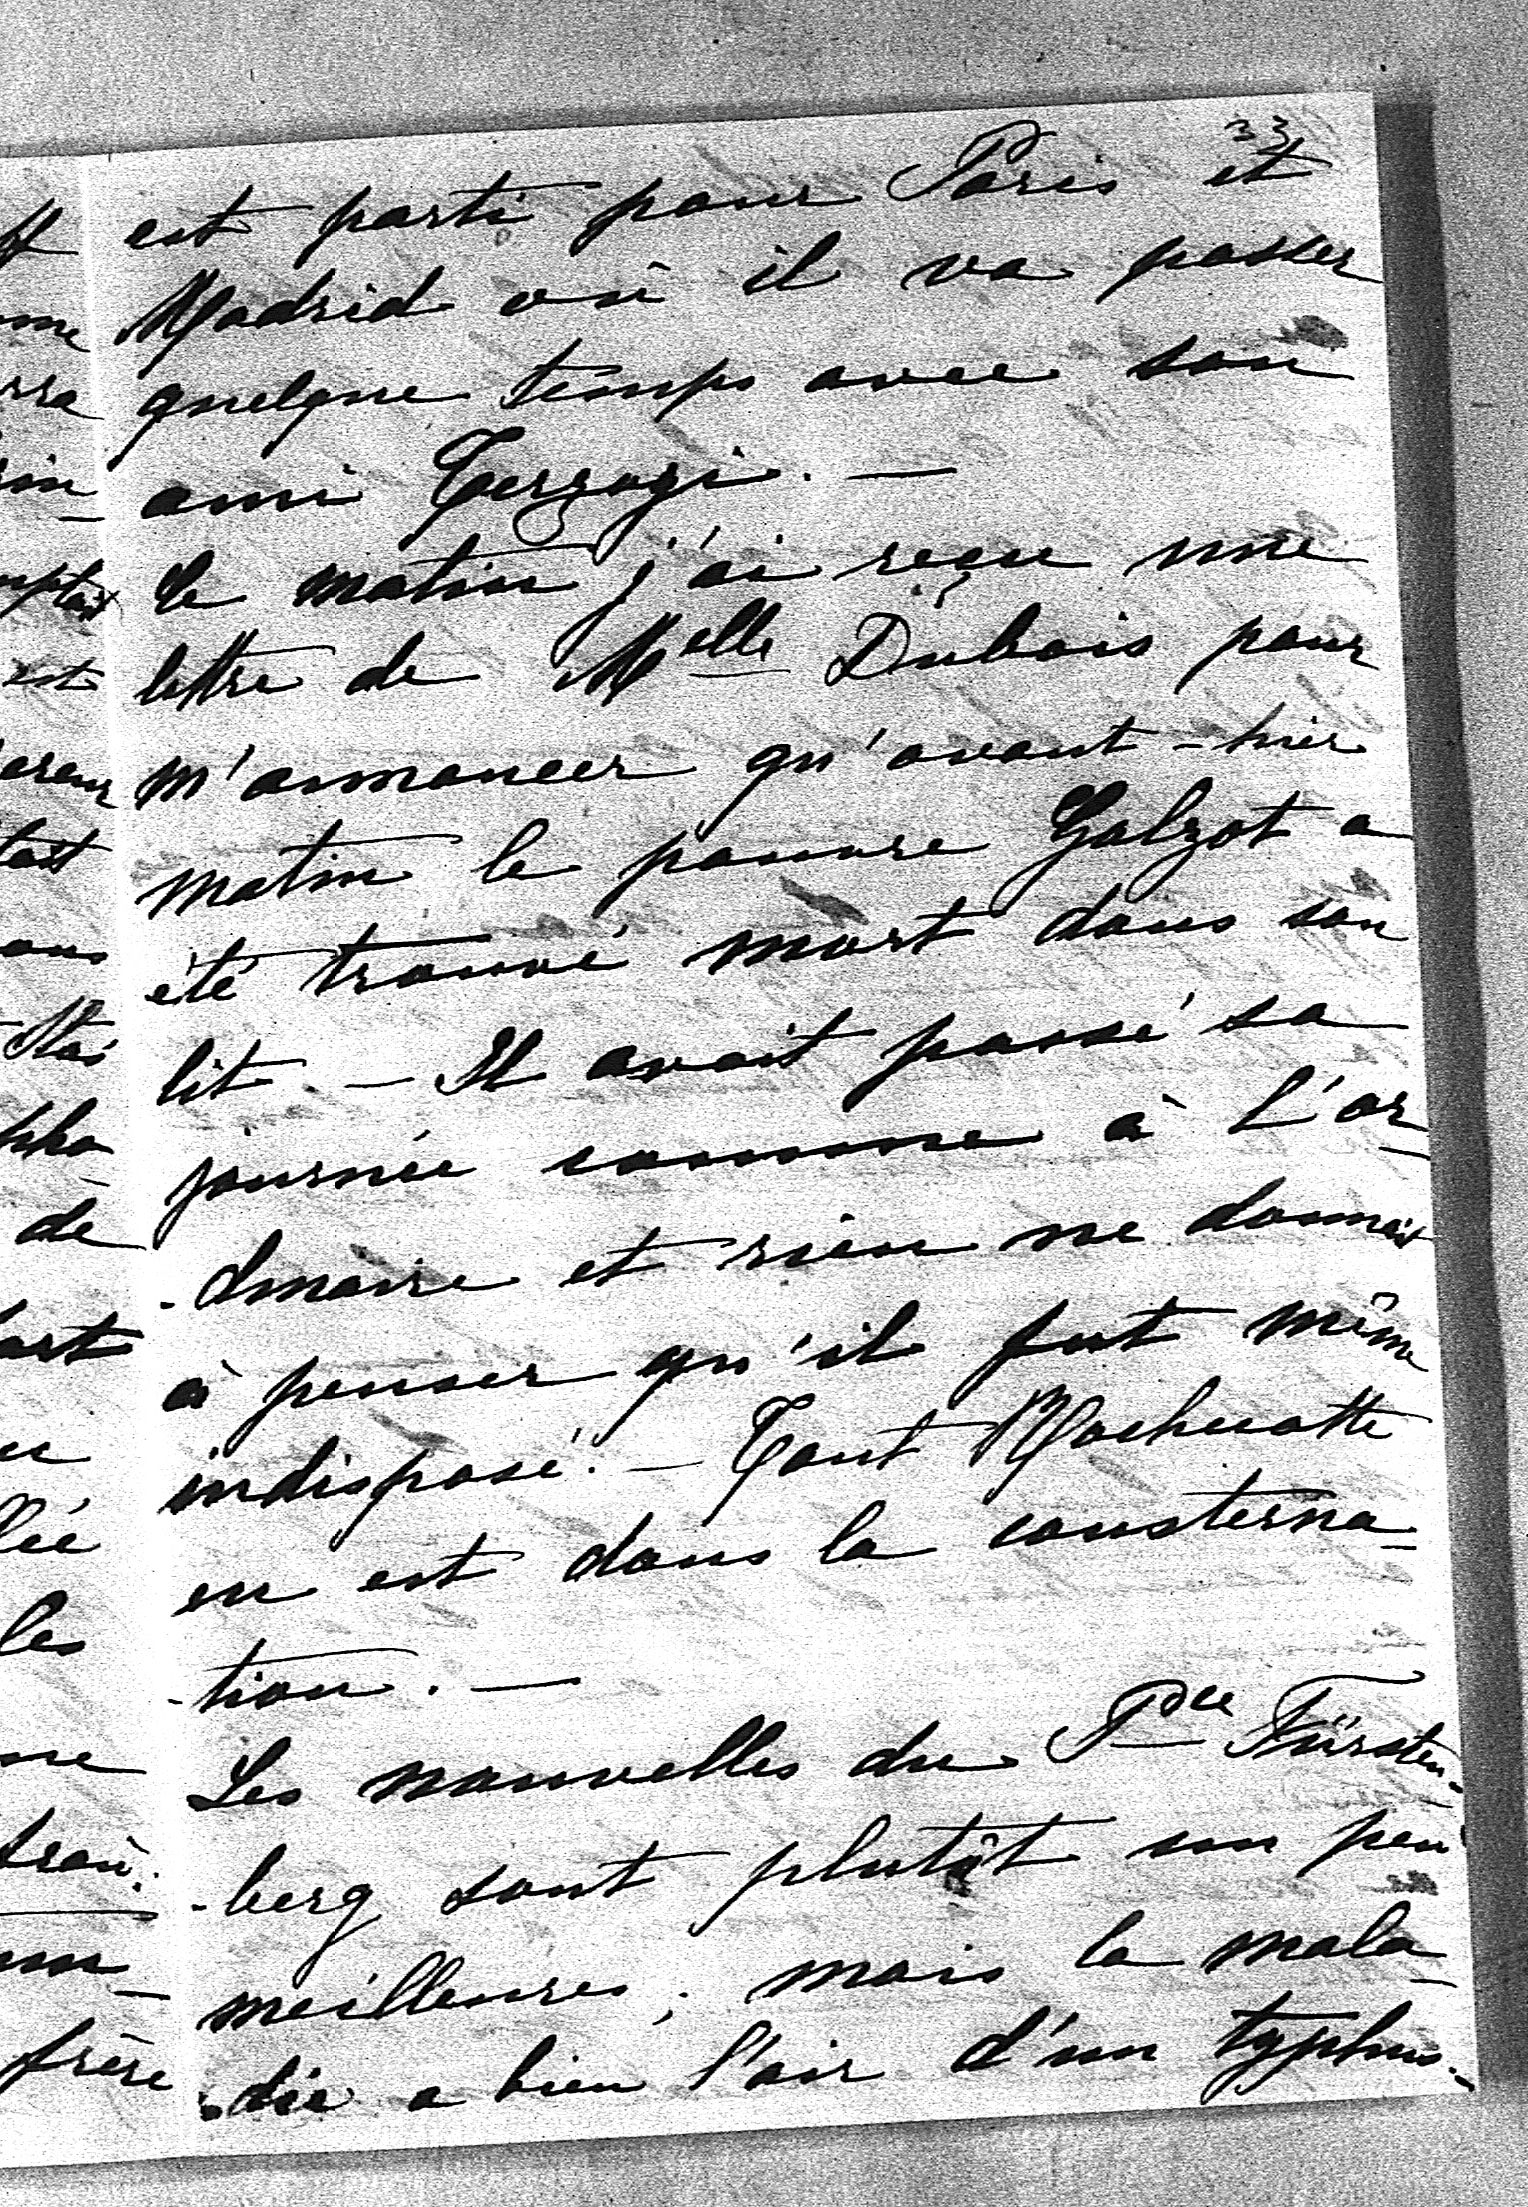 33
est parti pour Paris et
Madrid où il va passer
quelque temps avec son
ami Terzagi. —
Ce matin j'ai reçu une
lettre de Melle Dubois pour
m'annoncer qu'avant-hier
matin le pauvre Galzot a
été trouvé mort dans son
lit. — Il avait passé sa
journée comme à l'or-
-dinaire et rien ne donnait
à penser qu'il fut même
indisposé. — Tout
en est dans la consterna-
-tion. —
Les nouvelles du Pce Fürsten-
-berg sont plutôt un peu
meilleures; mais la mala-
-die a bien l'air d'un typhus.-
de
les
frère